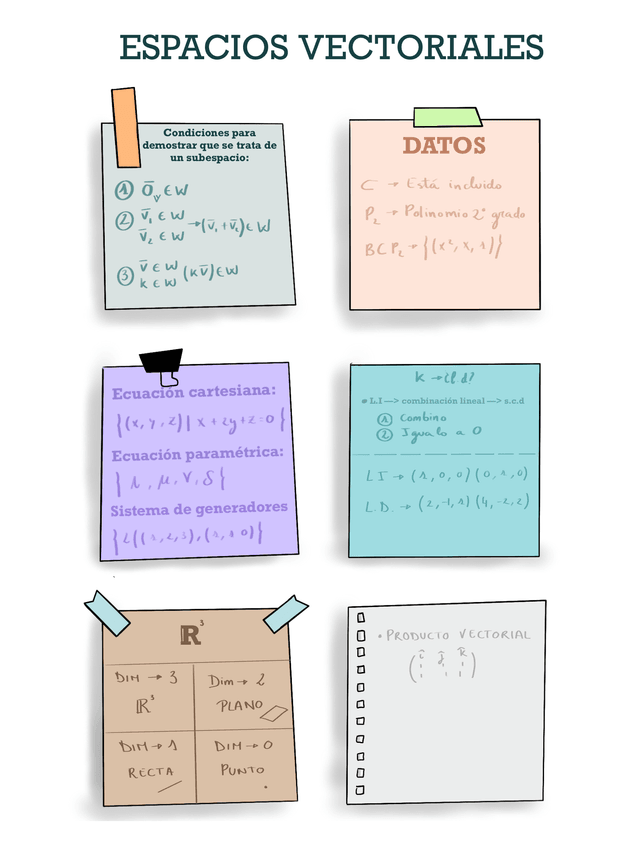 ESPACIOS VECTORIALES
Condiciones para
demostrar que se trata de
un subespacio:
① 0̄ᵥ ∈ W
② v̄₁ ∈ W
v̄₂ ∈ W → (v̄₁ + v̄₂) ∈ W
③ v̄ ∈ W
k ∈ W (k v̄) ∈ W
DATOS
⊂ → Está incluido
P₂ → Polinomio 2º grado
BCP₂ → {(x², x, 1)}
Ecuación cartesiana:
{(x, y, z) | x + 2y + z = 0}
Ecuación paramétrica:
{λ, μ, γ, δ}
Sistema de generadores
{L((1, 2, 3), (1, 1 0)}
k → ¿l.d?
• L.I —> combinación lineal —> s.c.d
① Combino
② Igualo a 0
L I → (1, 0, 0) (0, 1, 0)
L.D. → (2, -1, 1) (4, -2, 2)
ℝ³
DIM → 3
ℝ³
Dim → 2
PLANO
DIM → 1
RECTA
DIM → 0
PUNTO
• PRODUCTO VECTORIAL
î ĵ k̂